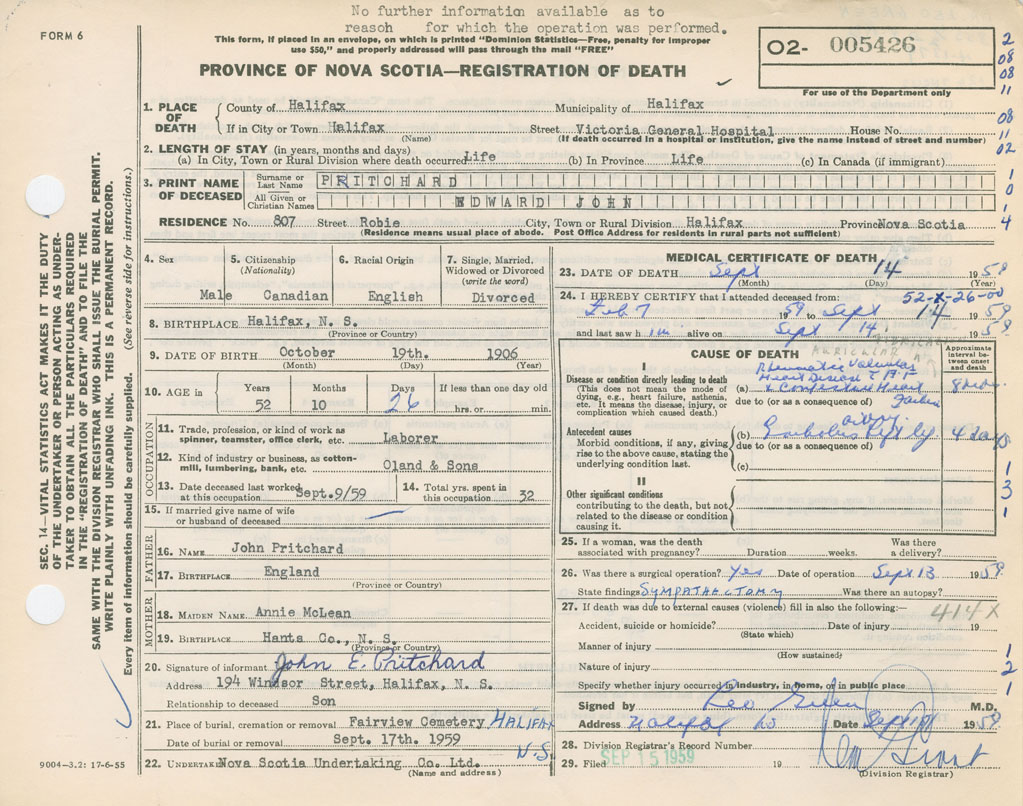 No further information available as to
reason for which the operation was performed.
FORM 6
This form, if placed in an envelope, on which is printed "Dominion Statistics—Free, penalty for improper
use $50," and properly addressed will pass through the mail "FREE"
O2- 005426
For use of the Department only
PROVINCE OF NOVA SCOTIA—REGISTRATION OF DEATH
2
08
08
11
08
11
02
1
0
1
4
1. PLACE OF DEATH
County of Halifax Municipality of Halifax
If in City or Town Halifax Street Victoria General Hospital House No.
(Name) (If death occurred in a hospital or institution, give the name instead of street and number)
2. LENGTH OF STAY (in years, months and days)
(a) In City, Town or Rural Division where death occurred Life (b) In Province Life (c) In Canada (if immigrant)
3. PRINT NAME OF DECEASED
Surname or Last Name PRITCHARD
All Given or Christian Names EDWARD JOHN
RESIDENCE No. 807 Street Robie City, Town or Rural Division Halifax Province Nova Scotia
(Residence means usual place of abode. Post Office Address for residents in rural parts not sufficient)
4. Sex
Male
5. Citizenship
(Nationality)
Canadian
6. Racial Origin
English
7. Single, Married,
Widowed or Divorced
(write the word)
Divorced
8. BIRTHPLACE Halifax, N. S.
(Province or Country)
9. DATE OF BIRTH October 19th. 1906
(Month) (Day) (Year)
10. AGE in
Years Months Days If less than one day old
52 10 26 hrs. or min.
OCCUPATION
11. Trade, profession, or kind of work as
spinner, teamster, office clerk, etc. Laborer
12. Kind of industry or business, as cotton-
mill, lumbering, bank, etc. Oland & Sons
13. Date deceased last worked
at this occupation Sept.9/59
14. Total yrs. spent in
this occupation 32
15. If married give name of wife
or husband of deceased
FATHER
16. NAME John Pritchard
17. BIRTHPLACE England
(Province or Country)
MOTHER
18. MAIDEN NAME Annie McLean
19. BIRTHPLACE Hants Co., N. S.
(Province or Country)
20. Signature of informant John E. Pritchard
Address 194 Windsor Street, Halifax, N. S.
Relationship to deceased Son
21. Place of burial, cremation or removal Fairview Cemetery, HALIFAX
Date of burial or removal Sept. 17th. 1959 N.S.
22. UNDERTAKER Nova Scotia Undertaking Co. Ltd.
(Name and address)
MEDICAL CERTIFICATE OF DEATH
23. DATE OF DEATH Sept 14 1959
(Month) (Day) (Year)
52-X-26-00
24. I HEREBY CERTIFY that I attended deceased from:
Feb 7 1959 to Sept 14 1959
and last saw h im alive on Sept 14 1959
CAUSE OF DEATH
Approximate interval between onset and death
I
Disease or condition directly leading to death
(This does not mean the mode of
dying, e.g., heart failure, asthenia,
etc. It means the disease, injury, or
complication which caused death.)
AURICULAR
Rheumatic Valvular
Heart Disease
(a) & Congestive Heart
due to (or as a consequence of) Failure
Antecedent causes
Morbid conditions, if any, giving
rise to the above cause, stating the
underlying condition last.
(b) Embolis left leg 4 days
due to (or as a consequence of)
(c)
II
Other significant conditions
contributing to the death, but not
related to the disease or condition
causing it.
1
3
1
25. If a woman, was the death
associated with pregnancy? Duration weeks. Was there
a delivery?
26. Was there a surgical operation? Yes Date of operation Sept 13 1959
State findings SYMPATHECTOMY Was there an autopsy?
27. If death was due to external causes (violence) fill in also the following:—
414X
Accident, suicide or homicide? Date of injury 19
(State which)
Manner of injury
(How sustained)
Nature of injury
1
2
1
Specify whether injury occurred in industry, in home, or in public place
Signed by M.D.
Address Halifax Date Sept 1959
28. Division Registrar's Record Number
29. Filed SEP 15 1959 19
(Division Registrar)
SEC. 14—VITAL STATISTICS ACT MAKES IT THE DUTY
OF THE UNDERTAKER OR PERSON ACTING AS UNDER-
TAKER TO OBTAIN ALL THE PARTICULARS REQUIRED
IN THE "REGISTRATION OF DEATH" AND TO FILE THE
SAME WITH THE DIVISION REGISTRAR WHO SHALL ISSUE THE BURIAL PERMIT.
WRITE PLAINLY WITH UNFADING INK. THIS IS A PERMANENT RECORD.
Every item of information should be carefully supplied. (See reverse side for instructions.)
9004—3.2: 17-6-55